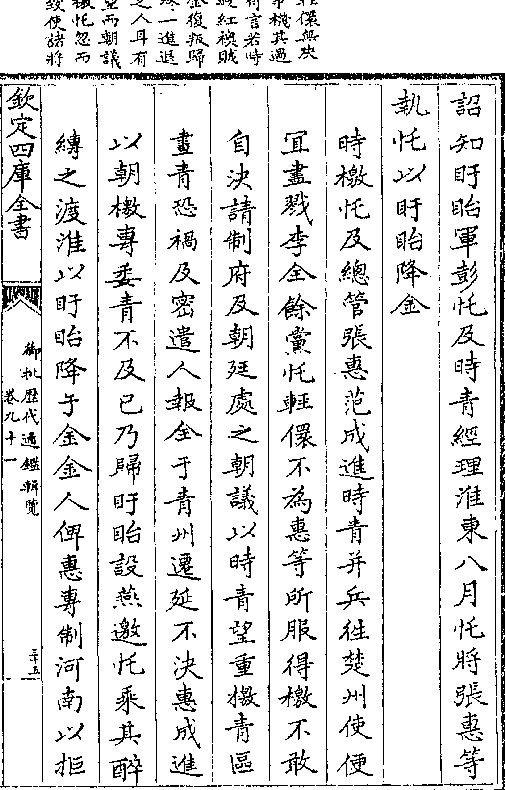 詔知盱眙軍彭忔及時青經理淮東八月忔將張惠等
執忔以盱眙降金
時檄忔及總管張惠范成進時青并兵往楚州使便
宜盡戮李全餘黨忔輕儇不為惠等所服得檄不敢
自決請制府及朝廷處之朝議以時青望重檄青區
畫青恐禍及密遣人報全于青州遷延不決惠成進
以朝檄專委青不及已乃歸盱眙設燕邀忔乘其醉
縛之渡淮以盱眙降于金金人俾惠專制河南以拒
欽定四庫全書
御批歷代通鑑輯覽
卷九十一
三十五
事機其過
言若時
紅襖賊
金復叛歸
一進退
之人耳有
而朝議
檄忔忽而
使諸將